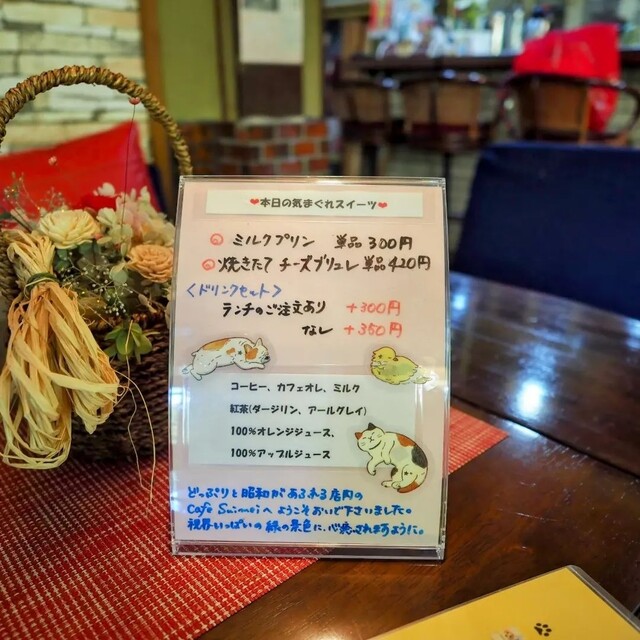 ❤本日の気まぐれスイーツ❤
◎ ミルクプリン 単品 300円
◎ 焼きたて チーズブリュレ 単品 420円
〈ドリンクセット〉
ランチのご注文あり +300円
なし +350円
コーヒー、カフェオレ、ミルク
紅茶(ダージリン、アールグレイ)
100%オレンジジュース、
100%アップルジュース
どっぷりと昭和があふれる店内の
Cafe へようこそおいで下さいました。
視界いっぱいの緑の景色に、心癒されますように。